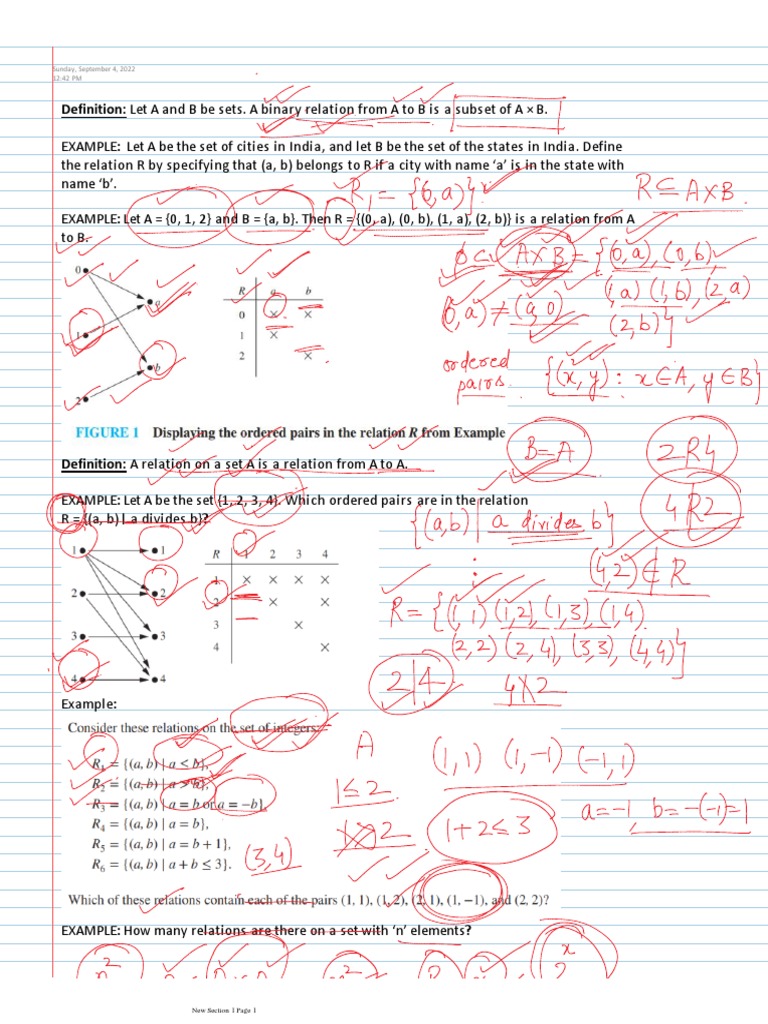 Sunday, September 4, 2022
12:42 PM
Definition: Let A and B be sets. A binary relation from A to B is a subset of A × B.
EXAMPLE: Let A be the set of cities in India, and let B be the set of the states in India. Define
the relation R by specifying that (a, b) belongs to R if a city with name ‘a’ is in the state with
name ‘b’.
R₁ = {(0,a)}
R ⊆ A×B.
EXAMPLE: Let A = {0, 1, 2} and B = {a, b}. Then R = {(0, a), (0, b), (1, a), (2, b)} is a relation from A
to B.
ϕ ⊂ A×B = {(0,a), (0,b),
(1,a) (1,b), (2,a)
(2,b)}
(0,a) ≠ (a,0)
ordered
pairs
{(x,y) : x∈A, y∈B}
0 a
1 b
2
R a b
0 × ×
1 ×
2 ×
FIGURE 1 Displaying the ordered pairs in the relation R from Example
B=A
2R4
Definition: A relation on a set A is a relation from A to A.
EXAMPLE: Let A be the set {1, 2, 3, 4}. Which ordered pairs are in the relation
R = {(a, b) | a divides b}?
{(a,b) | a divides b}
4R2
(4,2) ∉ R
1 1
2 2
3 3
4 4
R 1 2 3 4
1 × × × ×
2 × ×
3 ×
4 ×
R = {(1,1) (1,2), (1,3), (1,4)
(2,2) (2,4), (3,3), (4,4)}
2|4
4∤2
Example:
Consider these relations on the set of integers:
R₁ = {(a, b) | a ≤ b},
R₂ = {(a, b) | a > b},
R₃ = {(a, b) | a = b or a = −b},
R₄ = {(a, b) | a = b},
R₅ = {(a, b) | a = b + 1},
R₆ = {(a, b) | a + b ≤ 3}.
(3,4)
A
1≤2
(1,1) (1,-1) (-1,1)
1+2≤3
a=-1, b=-(-1)=1
Which of these relations contain each of the pairs (1, 1), (1, 2), (2, 1), (1, −1), and (2, 2)?
EXAMPLE: How many relations are there on a set with ‘n’ elements?
New Section 1 Page 1